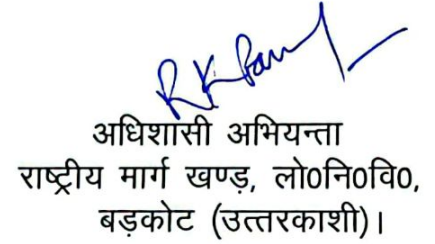 अधिशासी अभियन्ता
राष्ट्रीय मार्ग खण्ड़, लो0नि0वि0,
बड़कोट (उत्तरकाशी)।